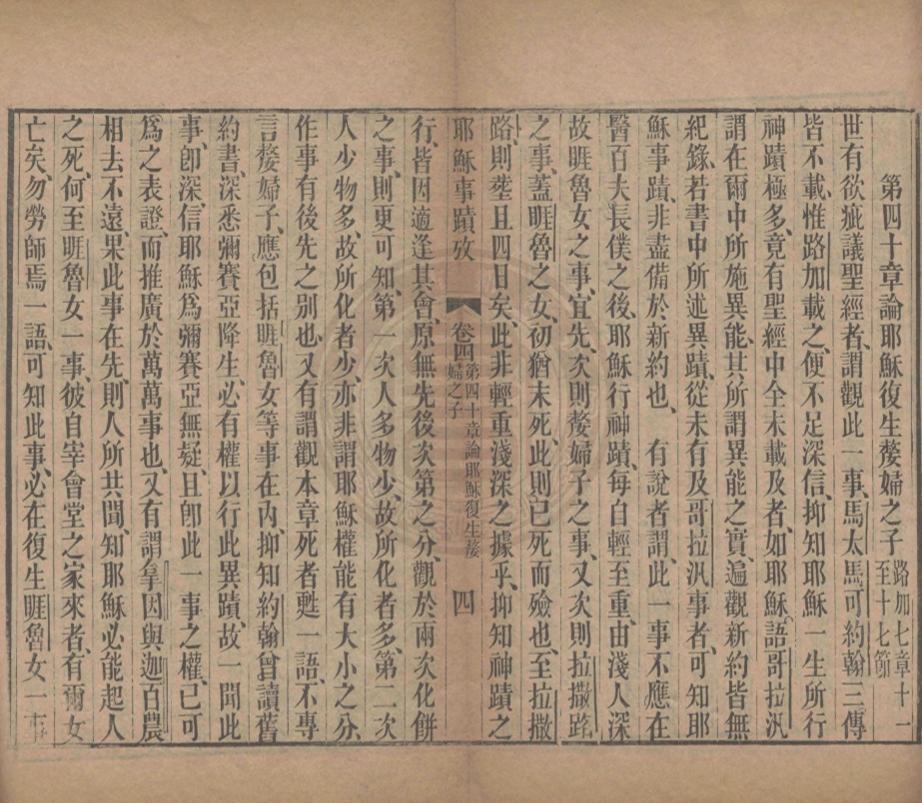 第四十章論耶穌復生嫠婦之子路加七章十一至十七節
世有欲疵議聖經者、謂觀此一事、馬太馬可約翰三傳
皆不載、惟路加載之、便不足深信、抑知耶穌一生所行
神蹟極多、竟有聖經中全未載及者、如耶穌語哥拉汛
謂在爾中所施異能、其所謂異能之實、遍觀新約皆無
紀錄、若書中所述異蹟、從未有及哥拉汛事者、可知耶
穌事蹟、非盡備於新約也、　有說者謂、此一事不應在
醫百夫長僕之後、耶穌行神蹟、每自輕至重、由淺入深
故睚魯女之事、宜先、次則嫠婦子之事、又次則拉撒路
之事、蓋睚魯之女、初猶未死、此則已死而殮也、至拉撒
路、則塟且四日矣、此非輕重淺深之據乎、抑知神蹟之
耶穌事蹟攷　卷四第四十章論耶穌復生嫠婦之子　四
行、皆因適逢其會、原無先後次第之分、觀於兩次化餅
之事、則更可知、第一次人多物少、故所化者多、第二次
人少物多、故所化者少、亦非謂耶穌權能有大小之分、
作事有後先之別也、又有謂觀本章死者甦一語、不專
言嫠婦子、應包括睚魯女等事在內、抑知約翰曾讀舊
約書、深悉彌賽亞降生、必有權以行此異蹟、故一聞此
事、卽深信耶穌爲彌賽亞無疑、且卽此一事之權、已可
爲之表證、而推廣於萬萬事也、又有謂拿因與迦百農
相去不遠、果此事在先、則人所共聞、知耶穌必能起人
之死、何至睚魯女一事、彼自宰會堂之家來者、有爾女
亡矣、勿勞師焉一語、可知此事、必在復生睚魯女一事